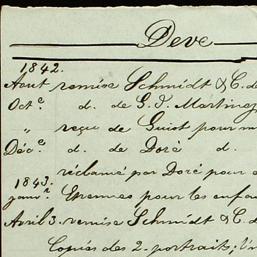 Deve
1842.
Aout remise Schmidt & C. d
Oct.e d. de G. J. Martinez
" reçu de Guiot pour m
Déc.e d. de Doré d.
réclamé par Doré pour
1843.
Janv.r Etrennes pour les enfan
Avril 3. remise Schmidt & C. d
Copies des 2. portraits;